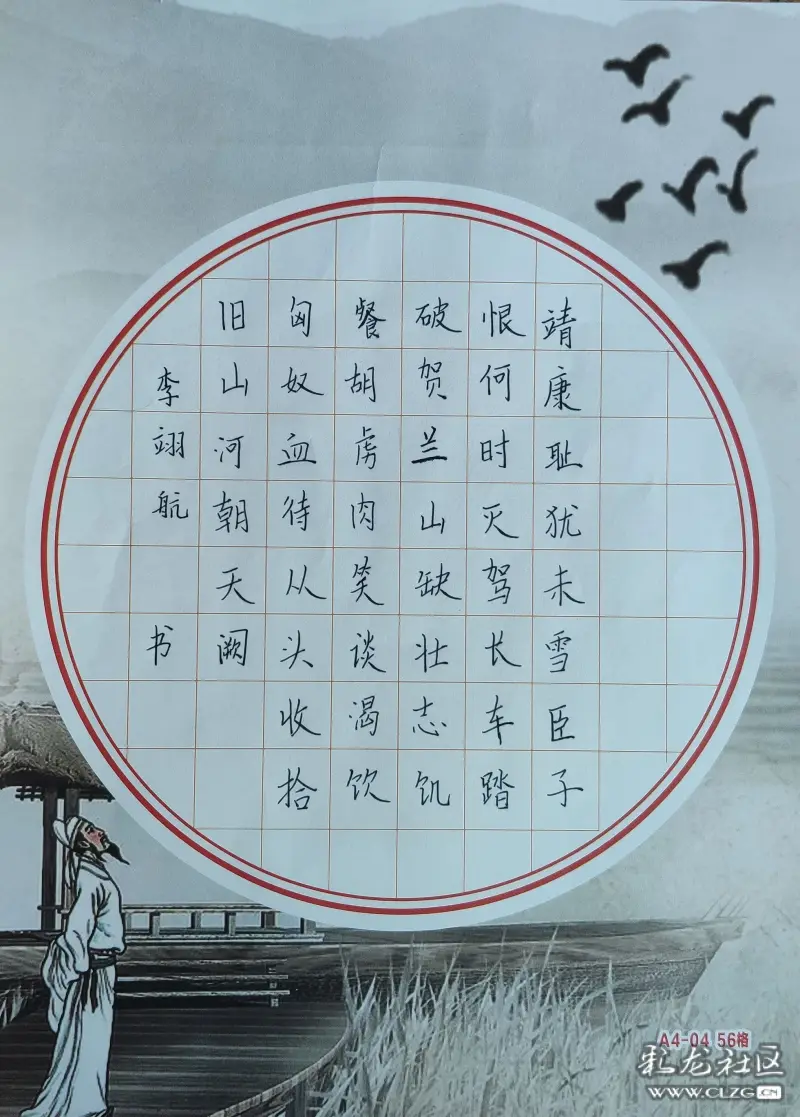 靖康耻犹未雪臣子
恨何时灭驾长车踏
破贺兰山缺壮志饥
餐胡虏肉笑谈渴饮
匈奴血待从头收拾
旧山河朝天阙
李翊航 书
A4-04 56格
彩龙社区
WWW.CLZG.CN